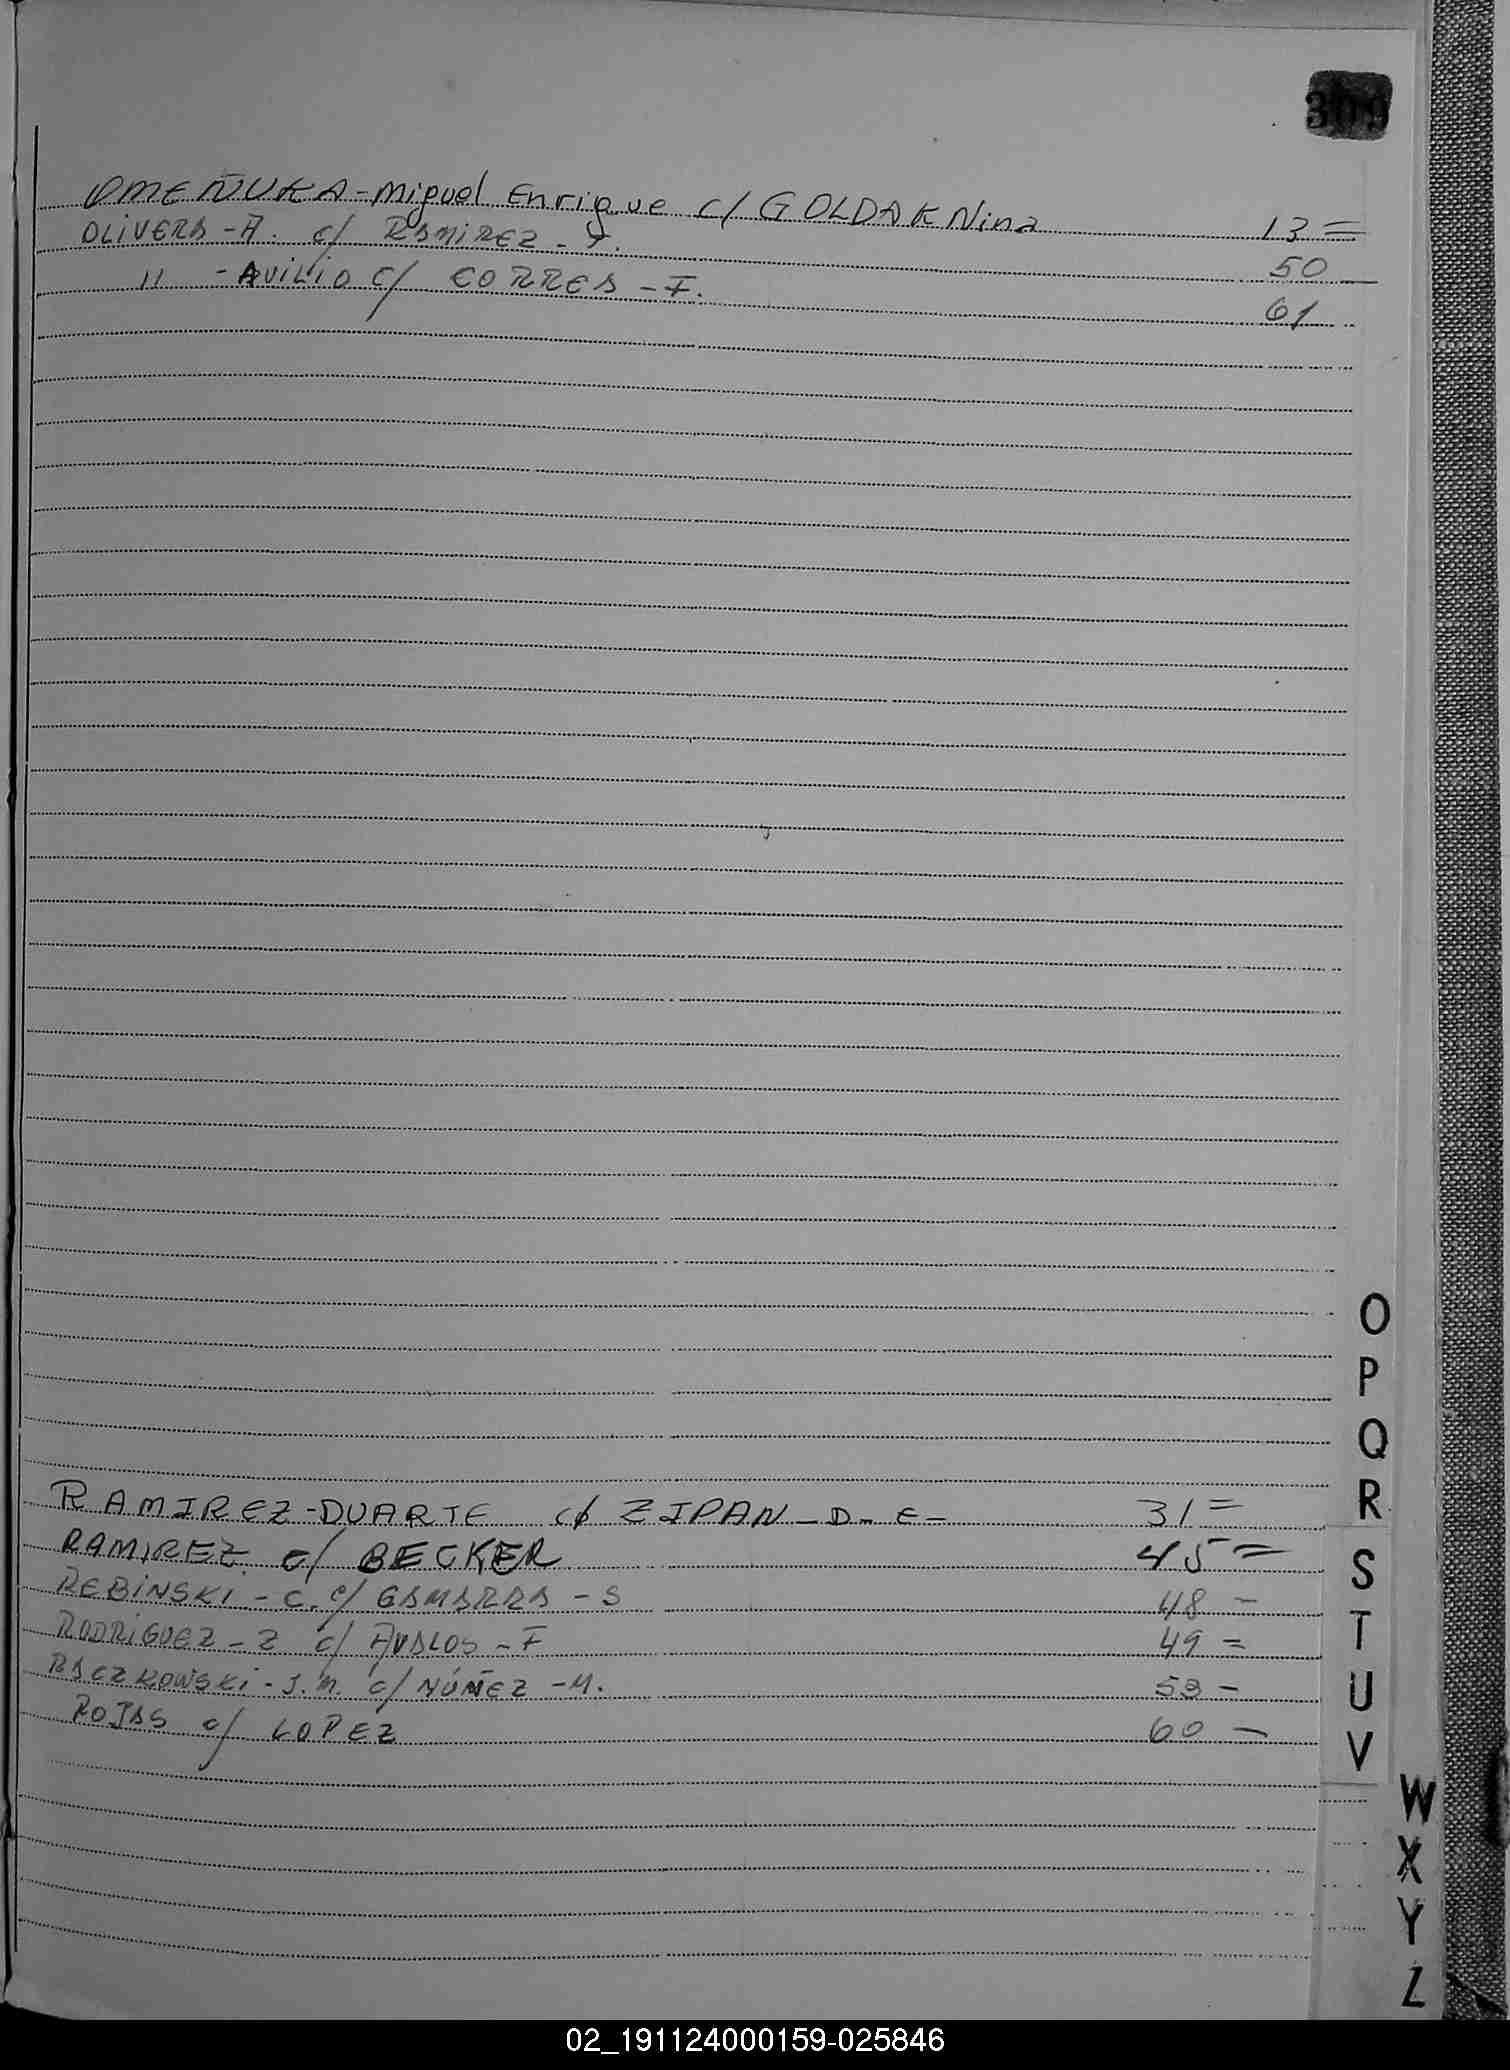 309
OMEÑUKA - Miguel Enrique c/ GOLDAK Nina 13 =
OLIVERA - A. c/ RAMIREZ - F. 50 —
" - AVILIO c/ CORREA - F. 61
RAMIREZ - DUARTE c/ ZIPAN - D. E - 31 =
RAMIREZ c/ BECKER 45 =
REBINSKI - C. c/ GAMARRA - S 48 -
RODRIGUEZ - Z c/ AVALOS - F 49 =
RACZKOWSKI - J. M. c/ NÚÑEZ - M. 53 -
ROJAS c/ LOPEZ 60 —
O
P
Q
R
S
T
U
V
W
X
Y
Z
02_191124000159-025846